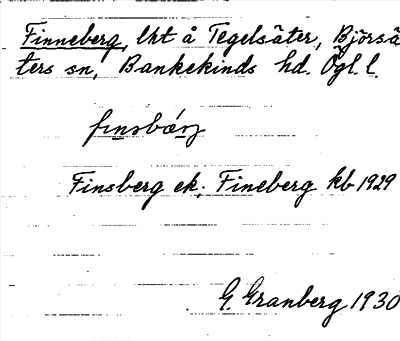 Finneberg, lht å Tegelsäter, Björsä
ters sn, Bankekinds hd. Ögl. l.
Finsberg ek. Fineberg kb 1929
G. Granberg 1930